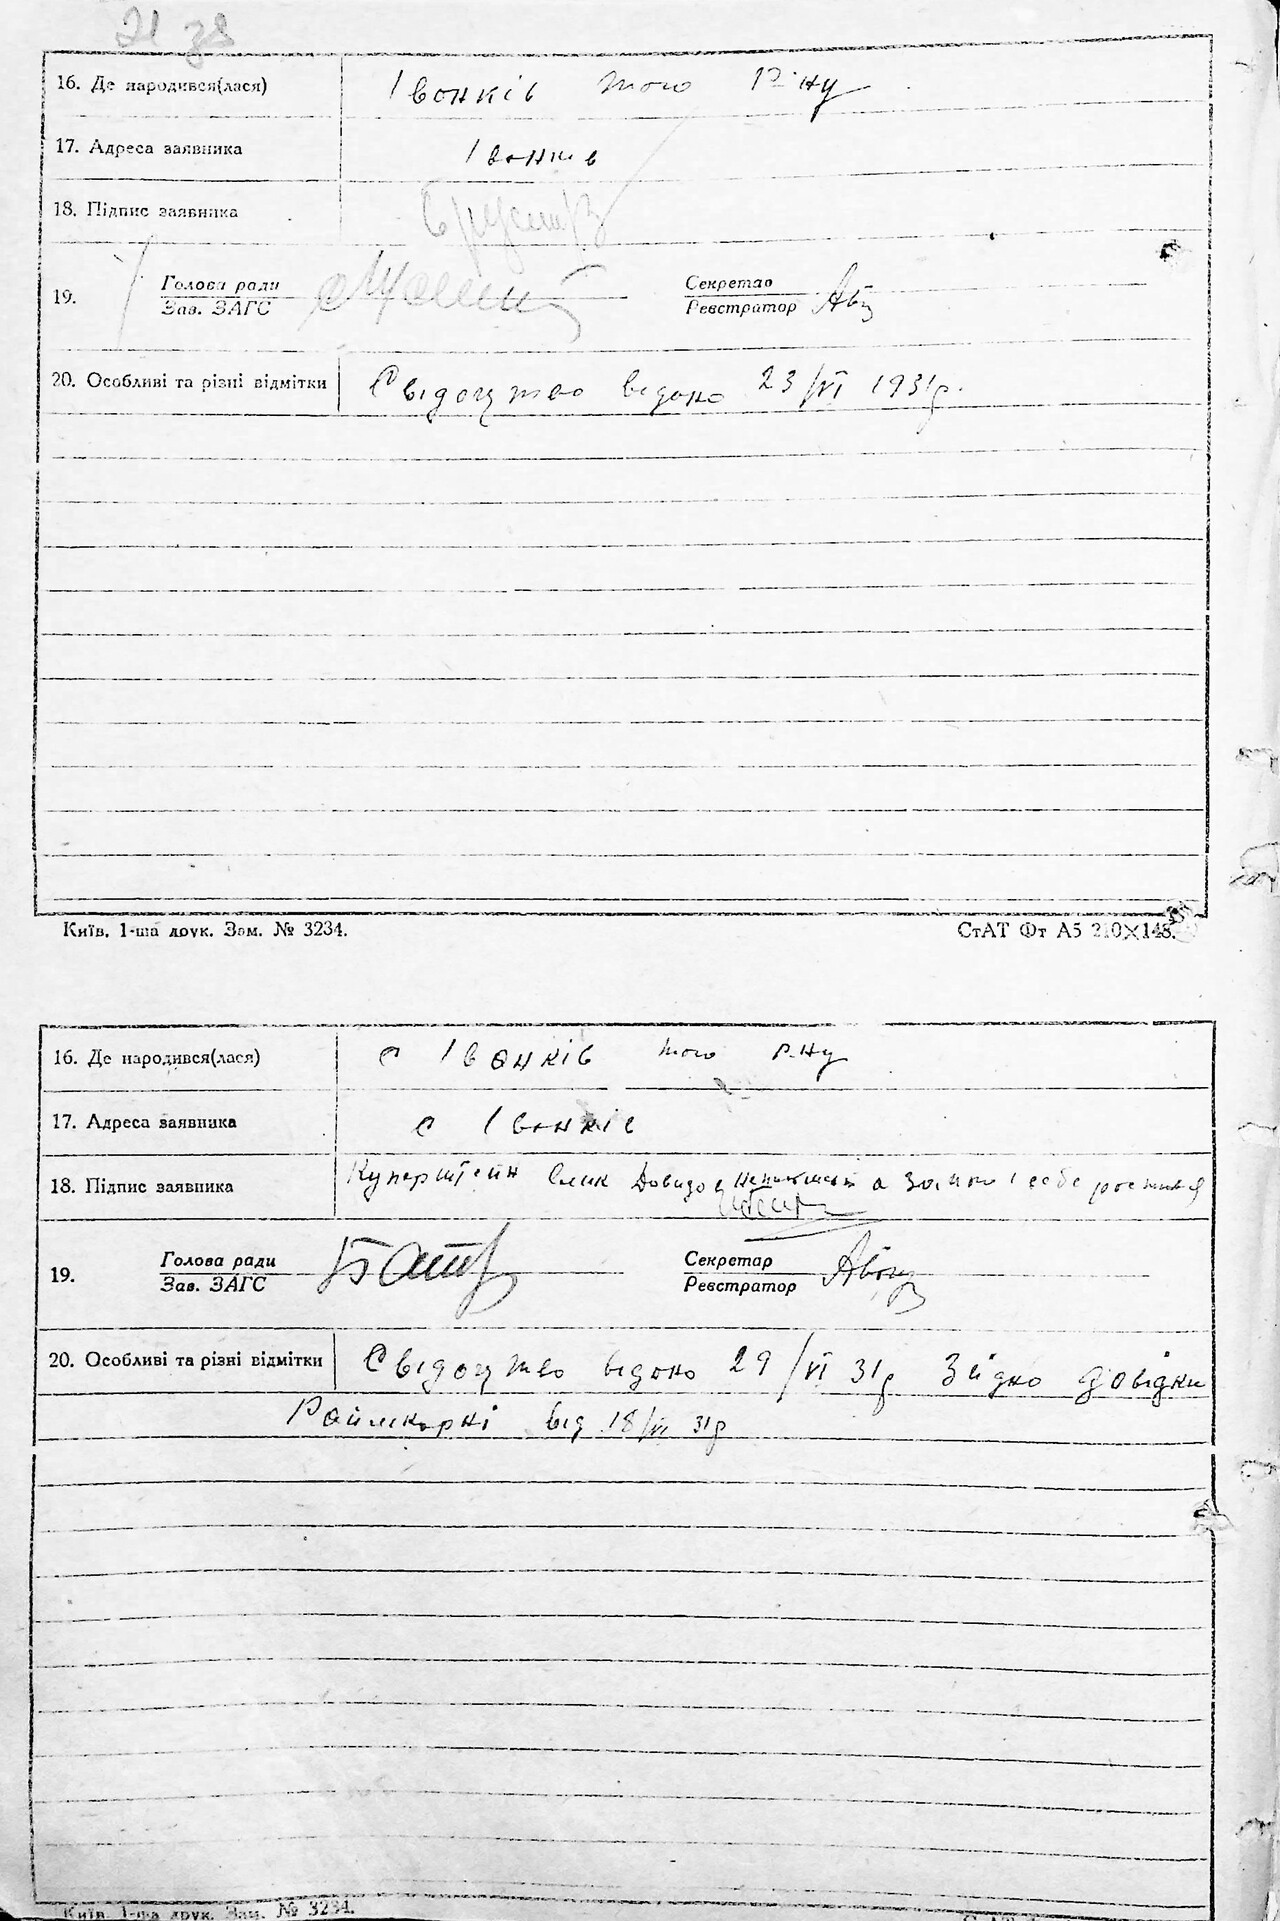 16. Де народився(лася) Іванків того р-ну
17. Адреса заявника Іванків
18. Підпис заявника
19. Голова ради Секретар
Зав. ЗАГС Реєстратор
20. Особливі та різні відмітки Свідоцтво відано 23/VI 1931р.
Київ. 1-ша друк. Зам. № 3234. СтАТ Фт А5 210×148.
16. Де народився(лася) с Іванків того р-ну
17. Адреса заявника с Іванків
18. Підпис заявника Куперштейн Довидов а за него
19. Голова ради Секретар
Зав. ЗАГС Реєстратор
20. Особливі та різні відмітки Свідоцтво відано 29/VI 31р Згідно довідки
від 18/VI 31р
Київ. 1-ша друк. Зам. № 3234.